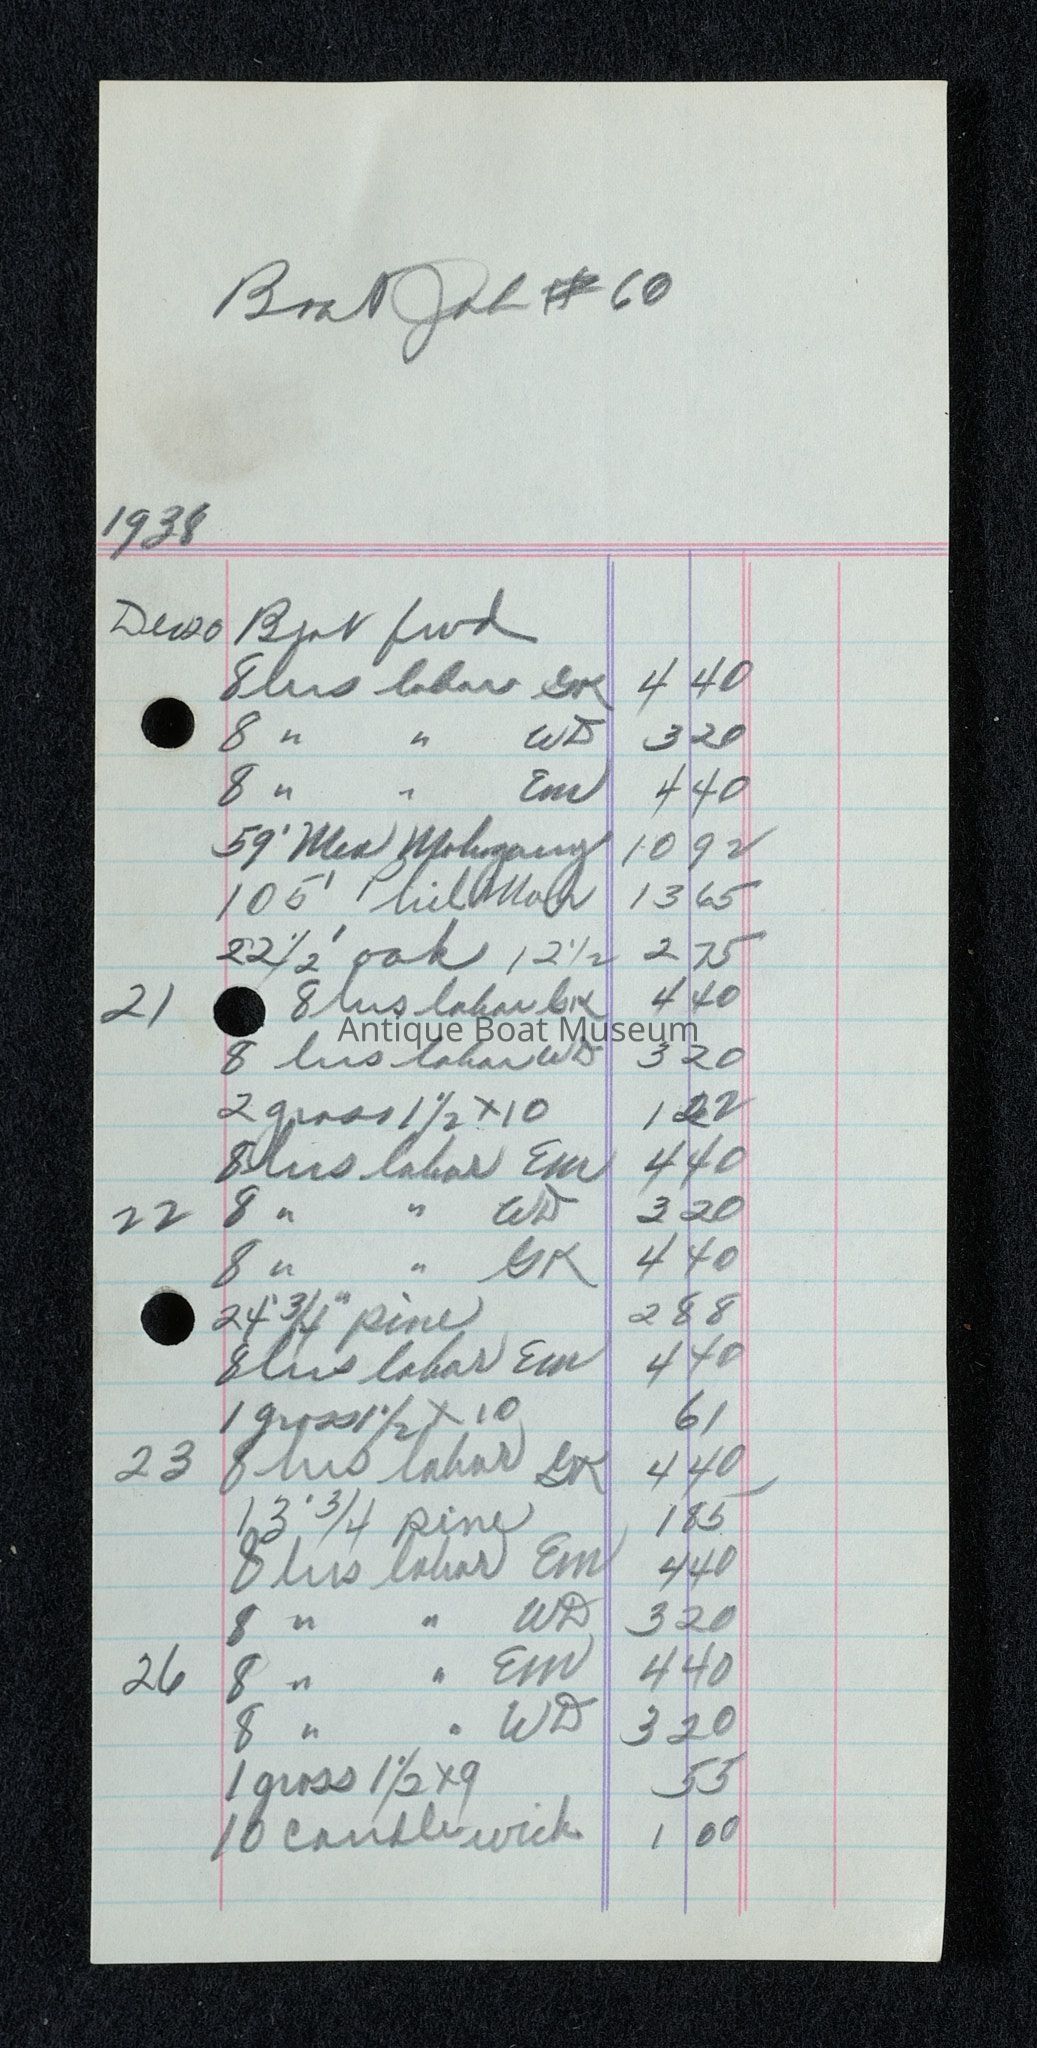 Boat Job # 60
1938
Dec 20 Boat fwd
8 hrs labor GK 4 40
8 " " WD 3 20
8 " " EM 4 40
59' Mex Mahogany 10 92
105' Phil Mah 13 65
22 1/2' oak 12 1/2 2 75
21 8 hrs labor GK 4 40
Antique Boat Museum
8 hrs labor WD 3 20
2 gross 1 1/2 x 10 1 22
8 hrs labor EM 4 40
22 8 " " WD 3 20
8 " " GK 4 40
24' 3/4" pine 2 88
8 hrs labor EM 4 40
1 gross 1 1/2 x 10 61
23 8 hrs labor GK 4 40
13' 3/4 pine 1 85
8 hrs labor EM 4 40
8 " " WD 3 20
26 8 " " EM 4 40
8 " " WD 3 20
1 gross 1 1/2 x 9 55
10 candle wick 1 00